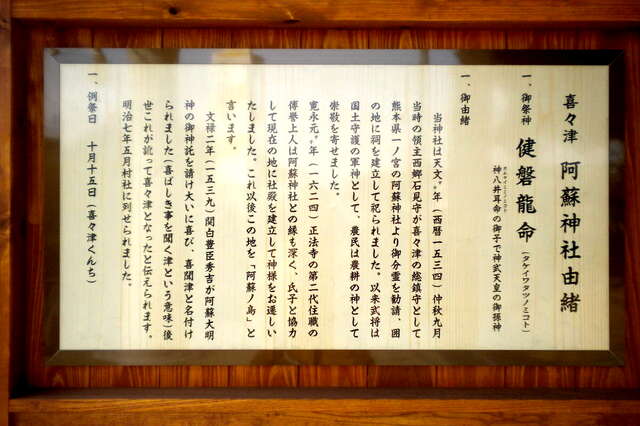 喜々津 阿蘇神社由緒
一、御祭神 健磐龍命(タケイワタツノミコト)
神八井耳命の御子で神武天皇の御孫神
カムヤイミミノミコト
一、御由緒
当神社は天文〃年(西暦一五三四)仲秋九月
当時の領主西郷石見守が喜々津の総鎮守として
熊本県一ノ宮の阿蘇神社より御分霊を勧請、囲
の地に祠を建立して祀られました。以来武将は
国土守護の軍神として、農民は農耕の神として
崇敬を寄せました。
寛永元〃年(一六二四)正法寺の第二代住職の
傳誉上人は阿蘇神社との縁も深く、氏子と協力
して現在の地に社殿を建立して神様をお遷しい
たしました。これ以後この地を「阿蘇ノ島」と
言います。
文禄二年(一五三九)関白豊臣秀吉が阿蘇大明
神の御神託を請け大いに喜び、喜聞津と名付け
られました(喜ばしき事を聞く津という意味)後
せこれが訛って喜々津となったと伝えられます。
明治七年五月村社に列せられました。
一、例祭日 十月十五日(喜々津くんち)